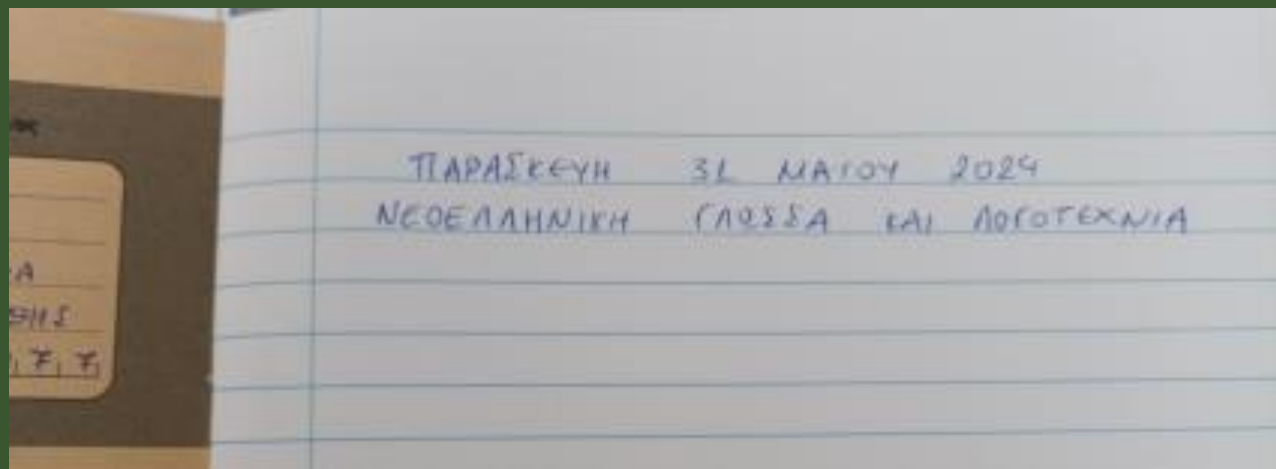 ΠΑΡΑΣΚΕΥΗ 31 ΜΑΙΟΥ 2024
ΝΕΟΕΛΛΗΝΙΚΗ ΓΛΩΣΣΑ ΚΑΙ ΛΟΓΟΤΕΧΝΙΑ